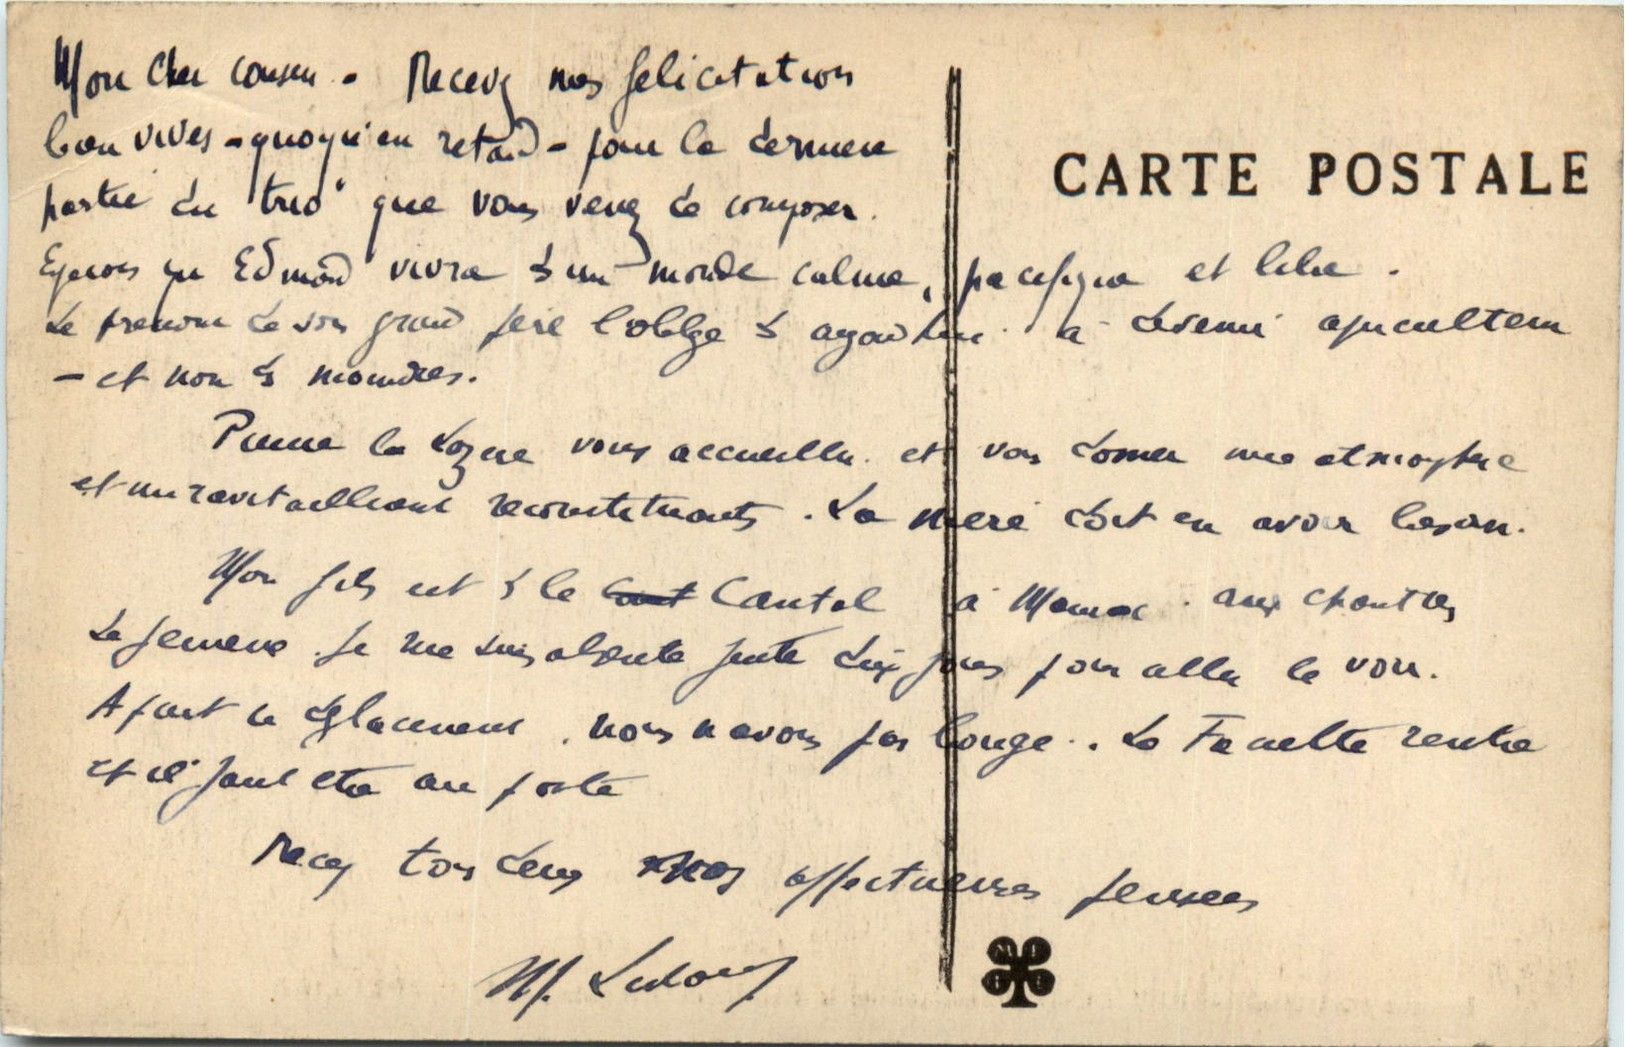 CARTE POSTALE
Mon cher cousin. Recevez nos felicitations
bien vives - quoiqu'en retard - pour la derniere
partie du "trio" que vous venez de composer.
Esperons qu' Edmond vivra ds un monde calme, pacifique et libre.
Le prenom de son grand pere l'oblige ds aujourd'hui à devenir apiculteur
- et non ds moindres.
Puisse la Lozere vous accueillir et vous donner une atmosphere
et un ravitaillement reconstituants. La mere doit en avoir besoin.
Mon fils est ds le Cantal à aux chantiers
Le Jeunesse. Je me suis absente juste dix jours pour aller le voir.
A part ce deplacement, nous n'avons pas bougé. La Faculté rentre
et il faut etre au poste
Recevez tous deux nos affectueuses pensees
M.